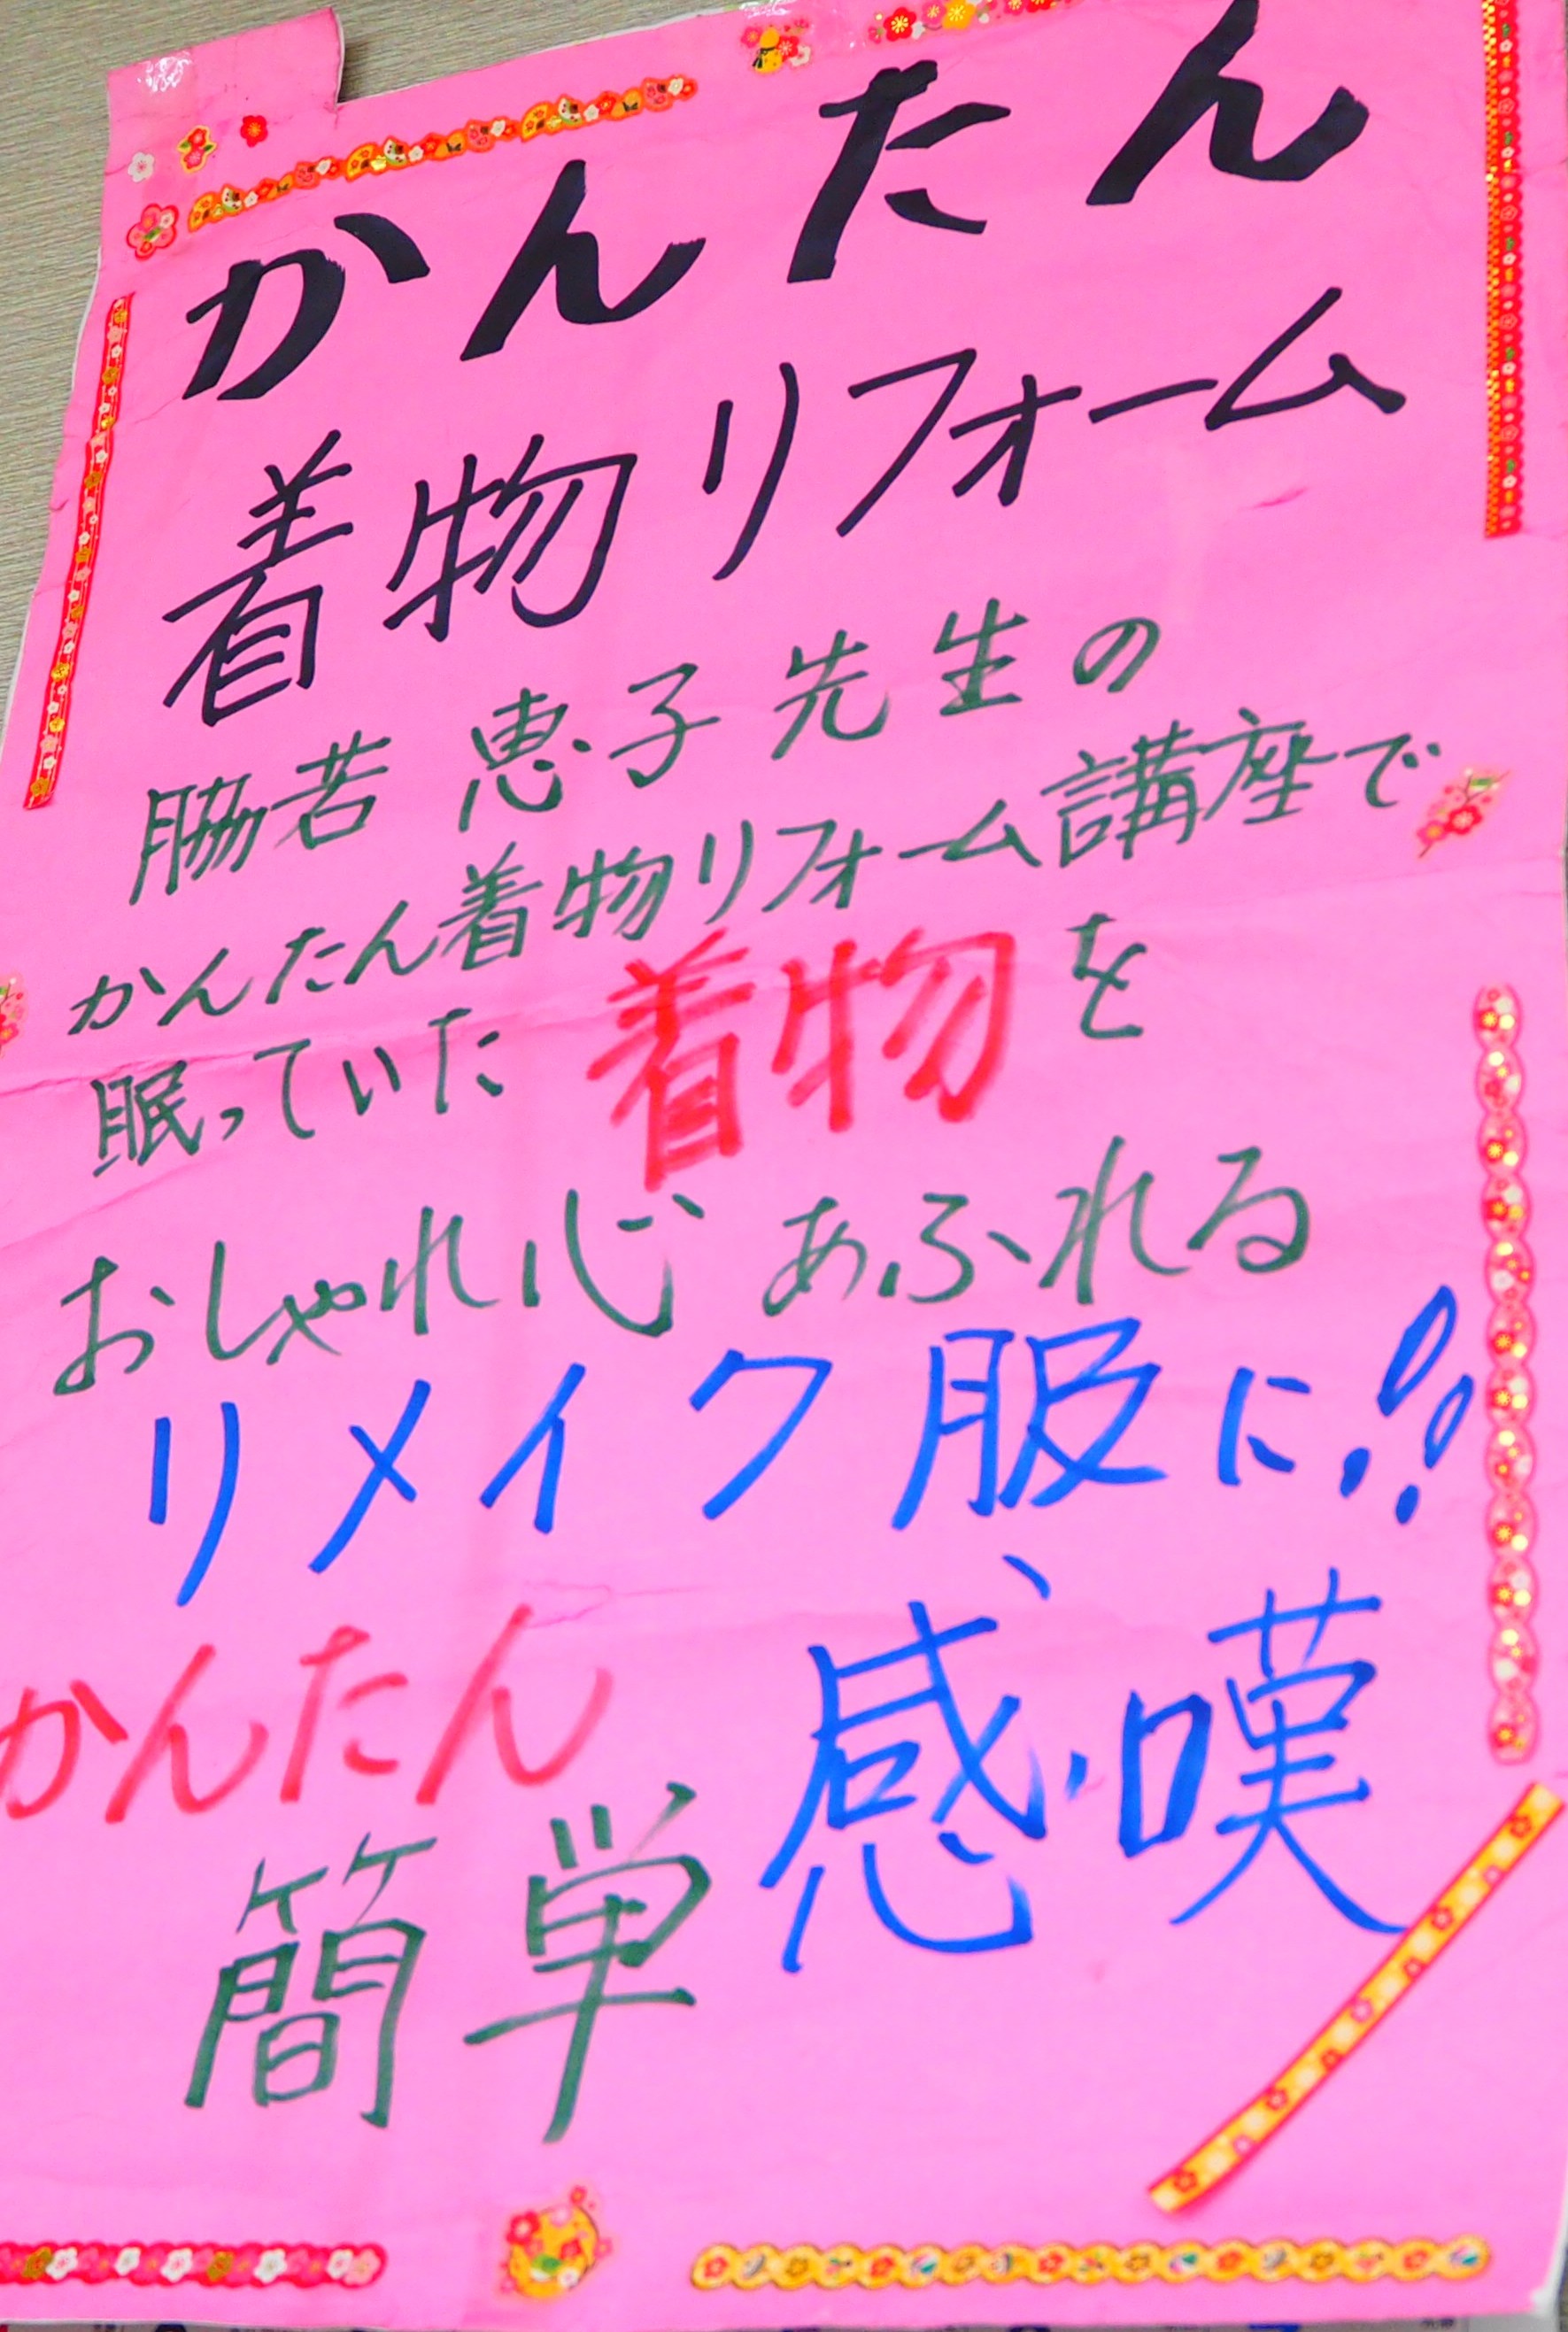 かんたん
着物リフォーム
脇若 恵子 先生の
かんたん着物リフォーム講座で
眠っていた 着物を
おしゃれ心 あふれる
リメイク服に!!
かんたん
簡単 感嘆